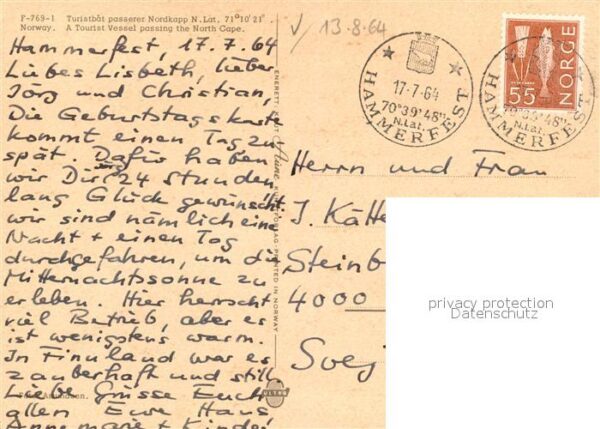 F-769-1 Turistbåt passerer Nordkapp N. Lat. 71°10'21"
Norway. A Tourist Vessel passing the North Cape.
Hammerfest, 17.7.64
Liebes Lisbeth, lieber
Jörg und Christian,
Die Geburtstagskarte
kommt einen Tag zu
spät. Dafür haben
wir Dir 24 Stunden
lang Glück gewünscht,
wir sind nämlich eine
Nacht + einen Tag
durchgefahren, um die
Mitternachtssonne zu
erleben. Hier herrscht
viel Betrieb, aber es
ist wenigstens warm.
In Finnland war es
zauberhaft und still
Liebe Grüsse Euch
allen Eure Hans
Annemarie + Kinder
ENERETT
PRINTED IN NORWAY
13.8.64
HAMMERFEST
17-7-64
70°39'48"
N.Lat.
NORGE
55
HAMMERFEST
N.Lat.
Herrn und Frau
J. Kätte
Steinb
4000
Svej
privacy protection
Datenschutz